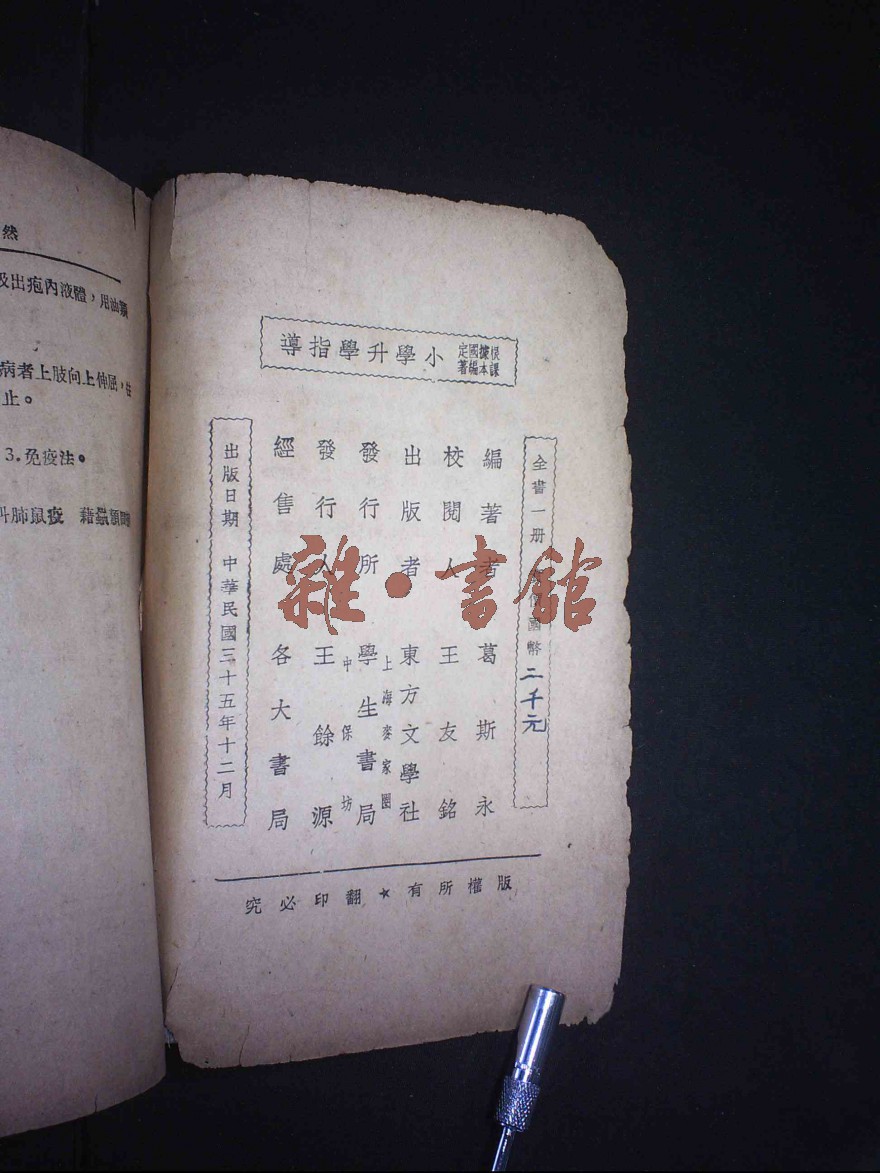 據國定
課本編著
小學升學指導
全書一册 價國幣二千元
編著者 葛斯永
校閱人 王友銘
出版者 東方文學社
發行所 學生書局
上海麥家圈
中保坊
發行人 王餘源
經售處 各大書局
出版日期 中華民國三十五年十二月
版權所有★翻印必究
然
出疱內液體，用油
病者上肢向上伸屈，
止。
3.免疫法。
肺鼠疫 藉
雜·書館